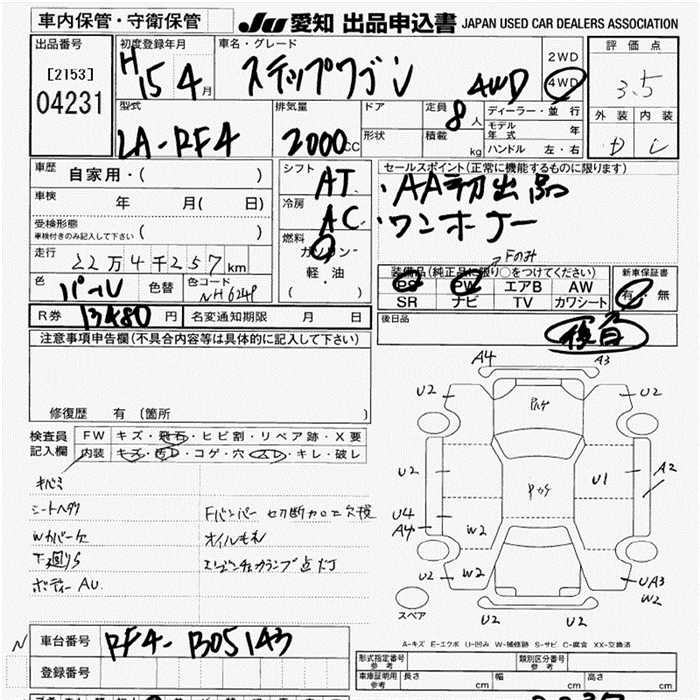 車内保管・守衛保管
JU 愛知 出品申込書 JAPAN USED CAR DEALERS ASSOCIATION
出品番号
[2153]
04231
初度登録年月
H 15 4月
車名・グレード
ステップワゴン 4WD
2WD
4WD
評価点
3.5
外装 内装
D C
型式
LA-RF4
排気量
2000CC
ドア
形状
定員 8人
積載 kg
ディーラー・並行
モデル年式 年
ハンドル 左・右
車歴 自家用・( )
車検 年 月( 日)
受検形態
車検付きのみ記入して下さい ( )
走行 22万4千257km
色 パール 色替 色コード NH624P
R券 13480円 名変通知期限 月 日
シフト AT
冷房 AC
燃料
ガソリン
軽・油
( )
セールスポイント(正常に機能するものに限ります)
・AA初出品
・ワンオーナー
Fのみ
装備品(純正品に限り○をつけてください)
PS PW エアB AW
SR ナビ TV カワシート
新車保証書
有・無
後日品
注意事項申告欄(不具合内容等は具体的に記入して下さい)
修復歴 有(箇所 )
検査員記入欄
FW キズ・飛石・ヒビ割・リペア跡・X要
内装 キズ・汚D・コゲ・穴・スレ・キレ・破レ
シートヘタリ
Wカバー欠
下廻りS
ボディーAU.
Fバンパー 切断加工交換
オイルもれ
エンジンチェックランプ点灯
A4 A3
U2 U2
U2 U1 A2
U4
A4 W2
U2 W2 UA3
W2
U2 U2
スペア
A-キズ E-エクボ U-凹み W-補修跡 S-サビ C-腐食 XX-交換済
N
車台番号 RF4-B05143
登録番号
形式指定番号
参考
類別区分番号
参考
車庫証明用
参考
長さ cm 幅 cm 高さ cm